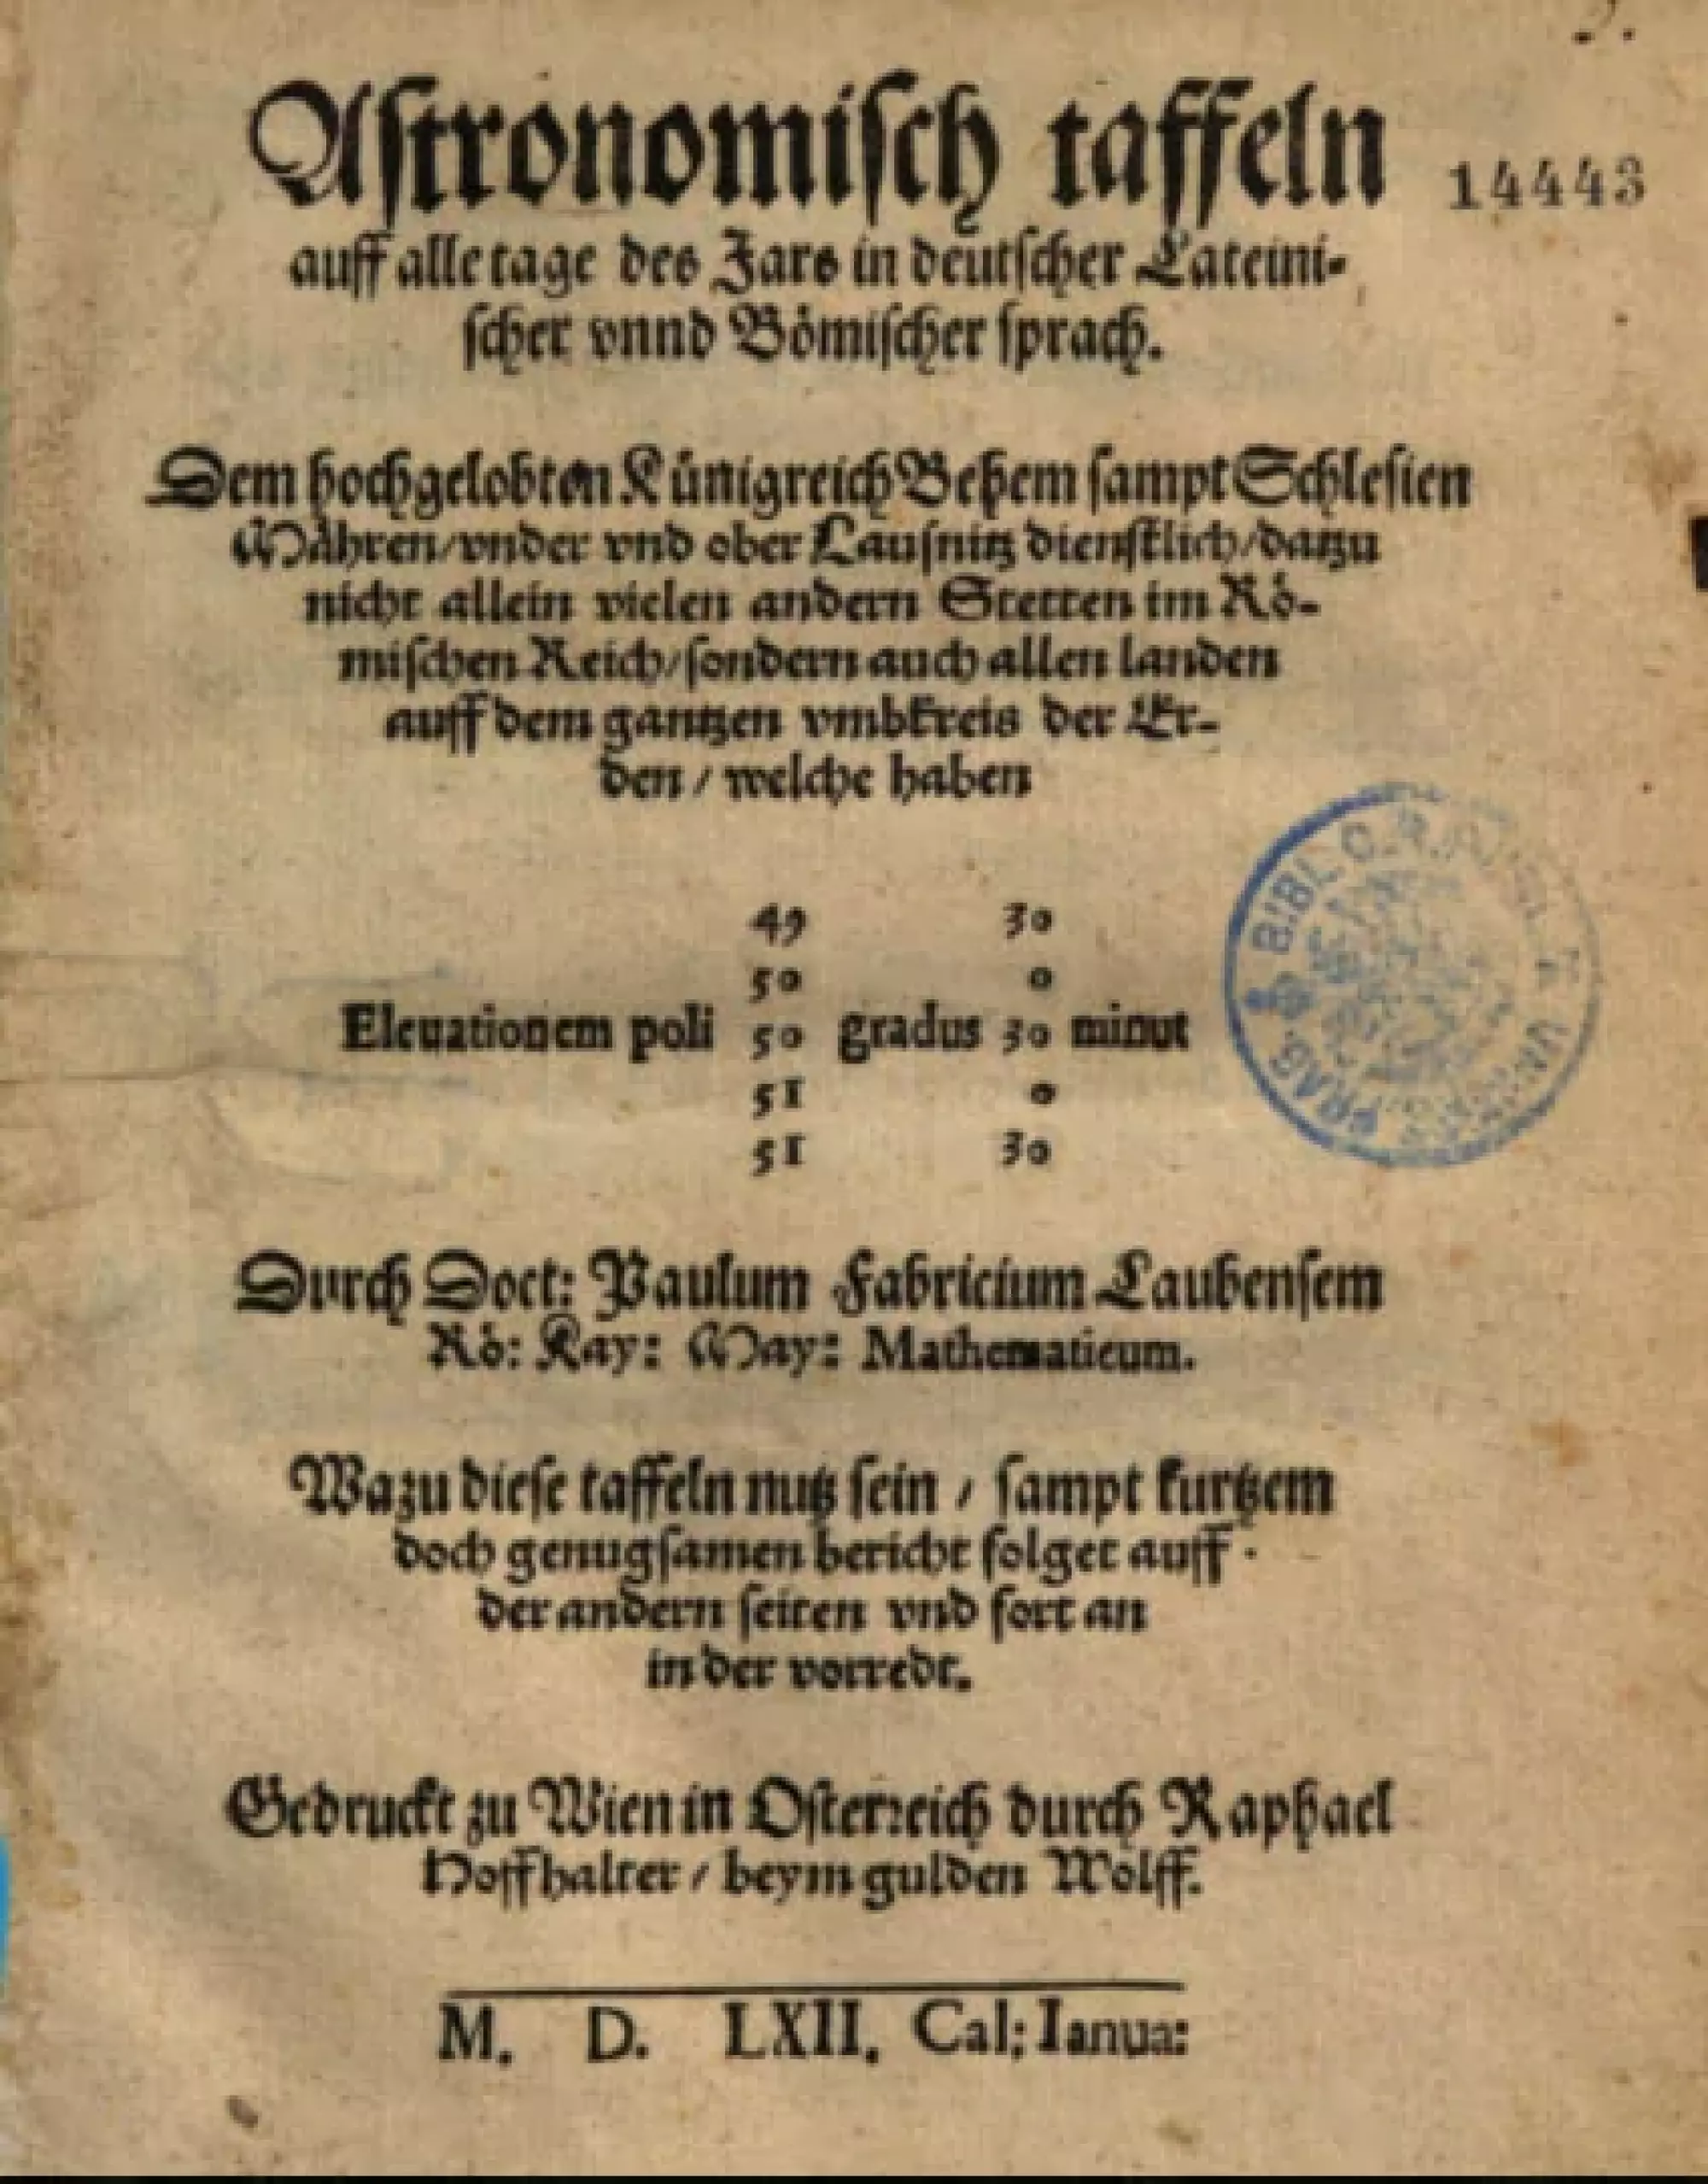 Astronomisch taffeln
14443
auff alle tage des Jars in deutscher Lateini-
scher vnnd Bömischer sprach.
Dem hochgelobten Künigreich Behem sampt Schlesien
Mähren/vnder vnd ober Lausnitz dienstlich/datzu
nicht allein vielen andern Stetten im Rö-
mischen Reich/sondern auch allen landen
auff dem gantzen vmbkreis der Er-
den/welche haben
49 30
50 0
Eleuationem poli 50 gradus 30 minut
51 0
51 30
BIBL. C. R. UNIV. PRAG.
Durch Doct: Paulum Fabricium Laubensem
Rö: Kay: May: Mathematicum.
Wazu diese taffeln nutz sein / sampt kurtzem
doch genugsamen bericht folget auff
der andern seiten vnd fort an
in der vorredt.
Gedruckt zu Wien in Osterreich durch Raphael
Hoffhalter / beym gulden Wolff.
M. D. LXII. Cal; Ianua: